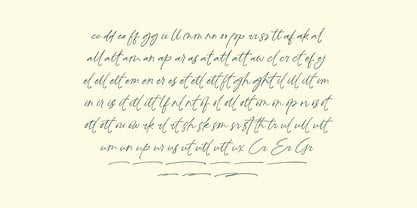 cc dd ee ff gg ii ll mm nn oo pp rr ss tt af ak al
all alt am an ap ar as at atl att aw cl cr ct ef ej
el ell elt em en er es et etl ett ft gh ght il ill ilt im
in ir is it itl itt lf nl nt of ol oll olt om on op or is ot
otl ott ou ow rk rl rt sh sk sm sr st th tr ul ull ult
um un up ur us ut utl utt ux Cr Er Gr